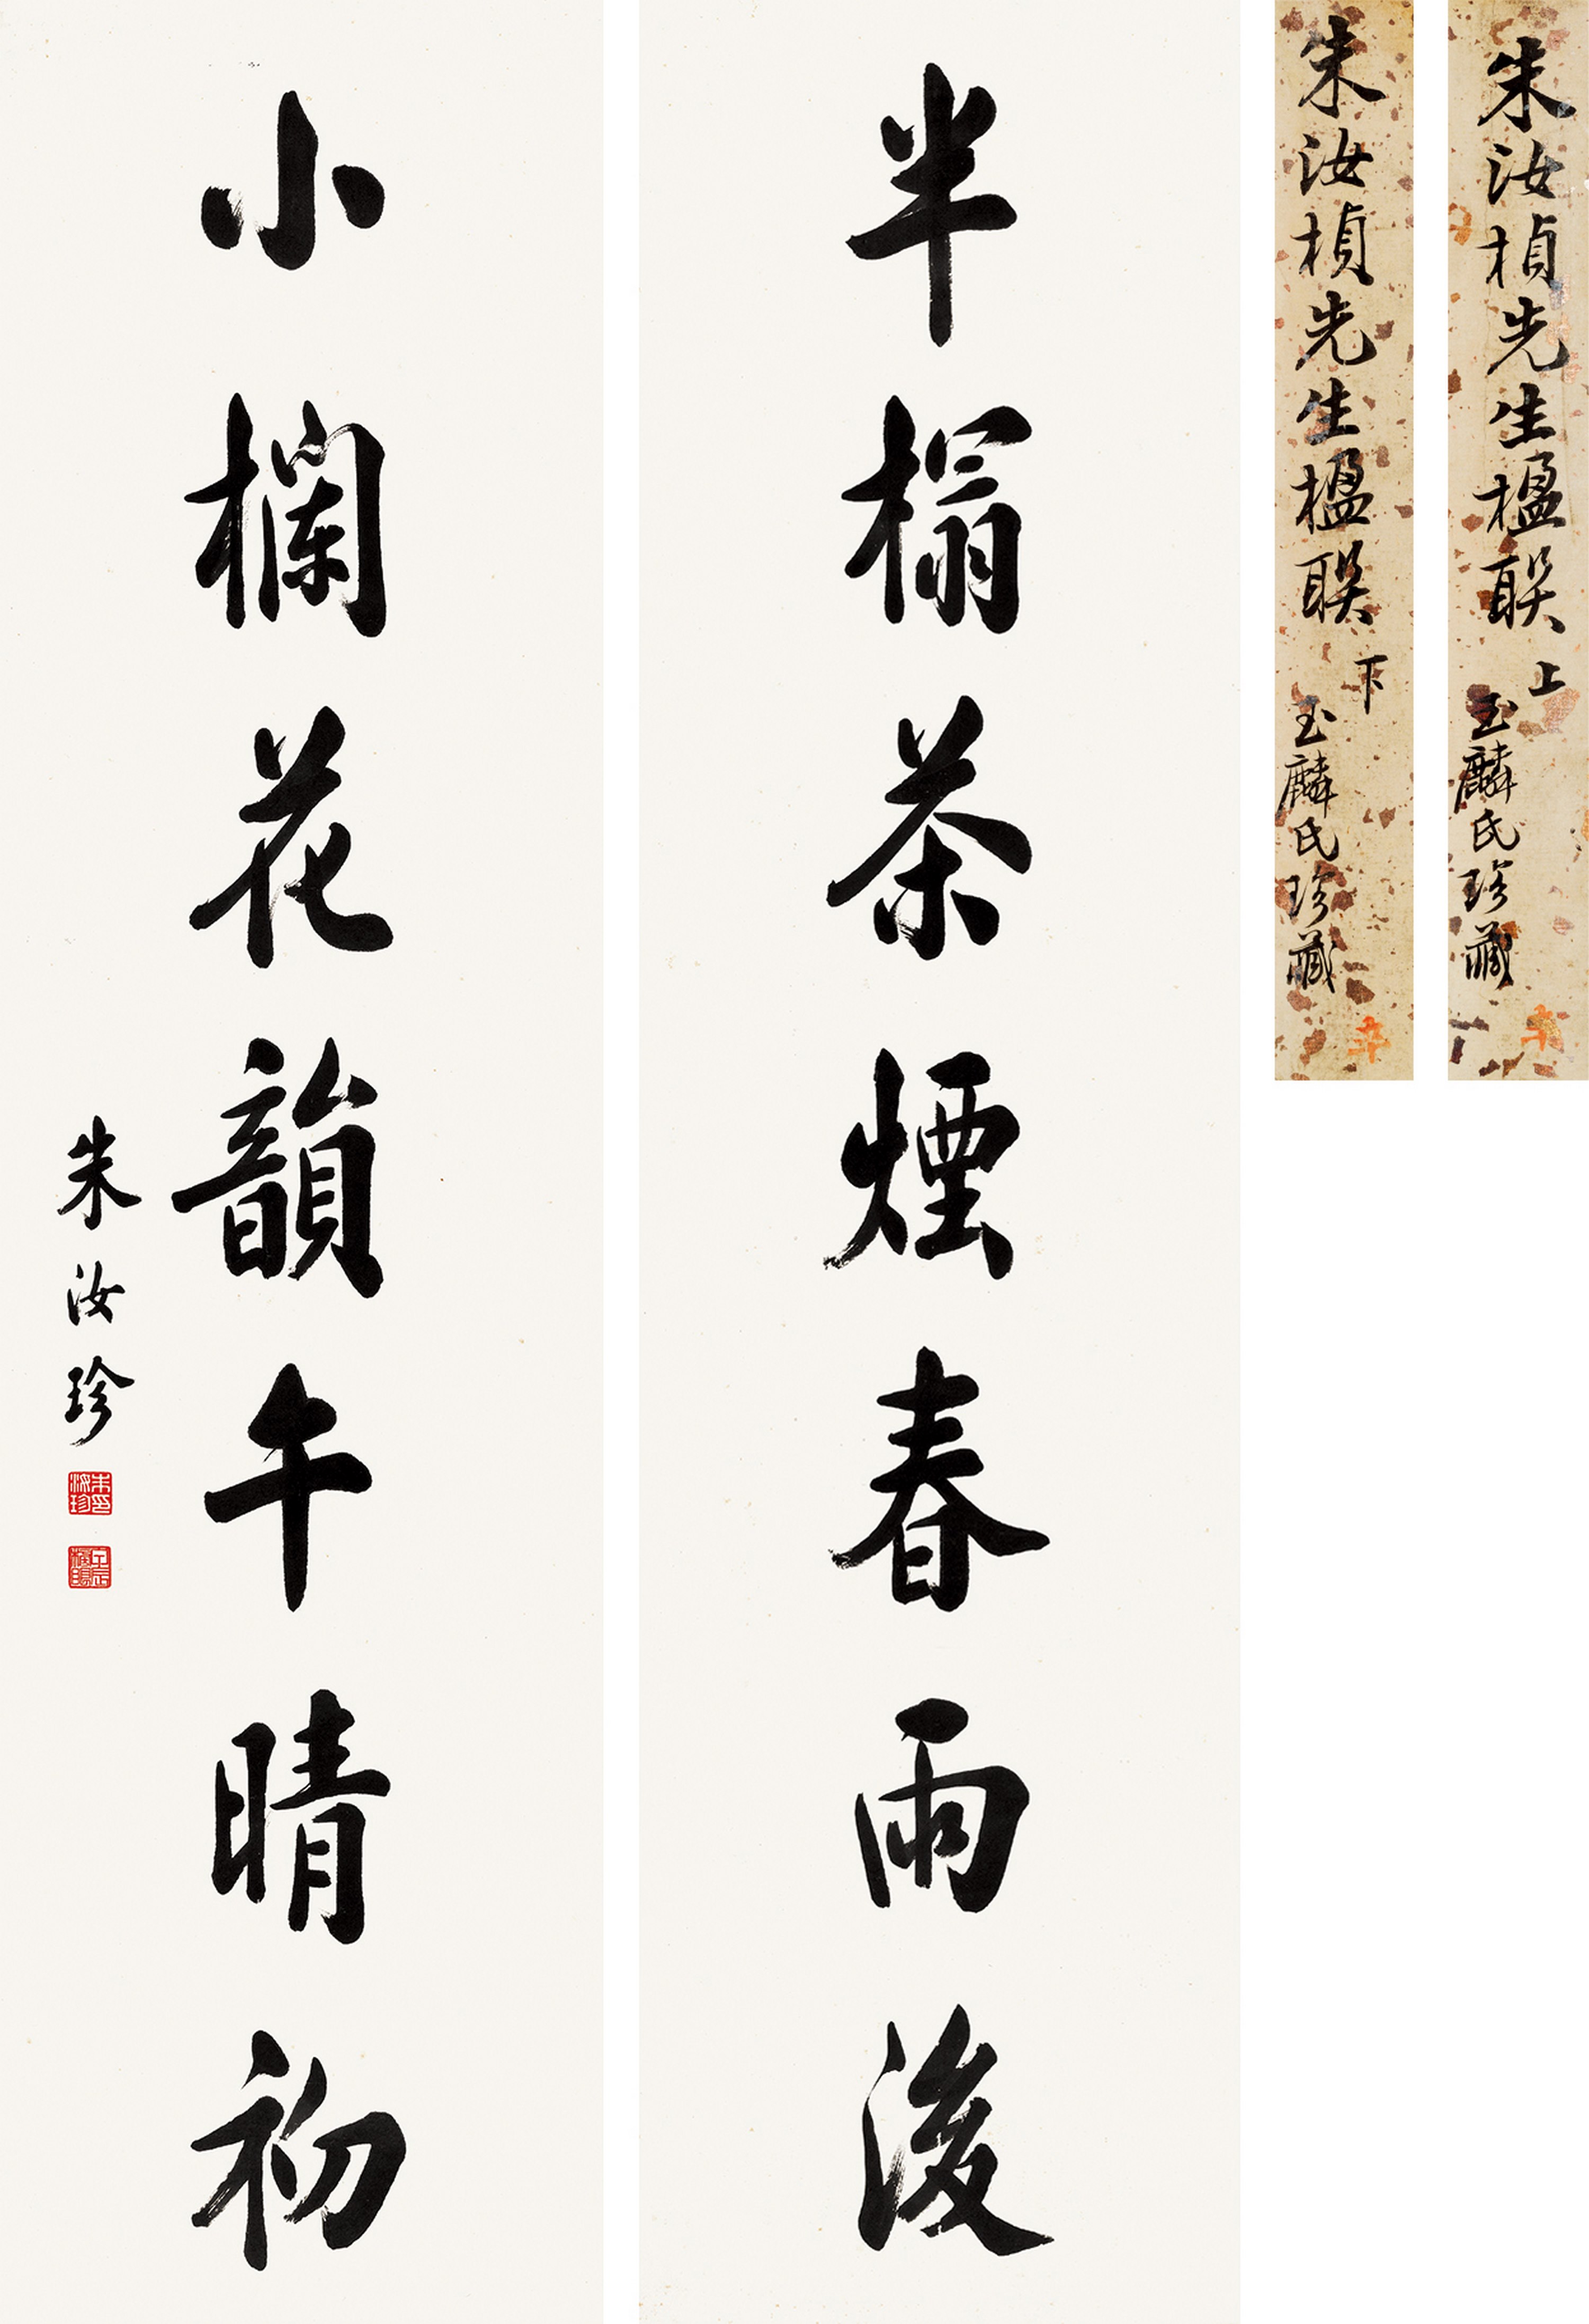 朱汝楨先生楹联 上
玉麟氏珍藏
朱汝楨先生楹联 下
玉麟氏珍藏
半榻茶煙春雨後
小欄花韻午晴初
朱汝珍
朱汝珍印